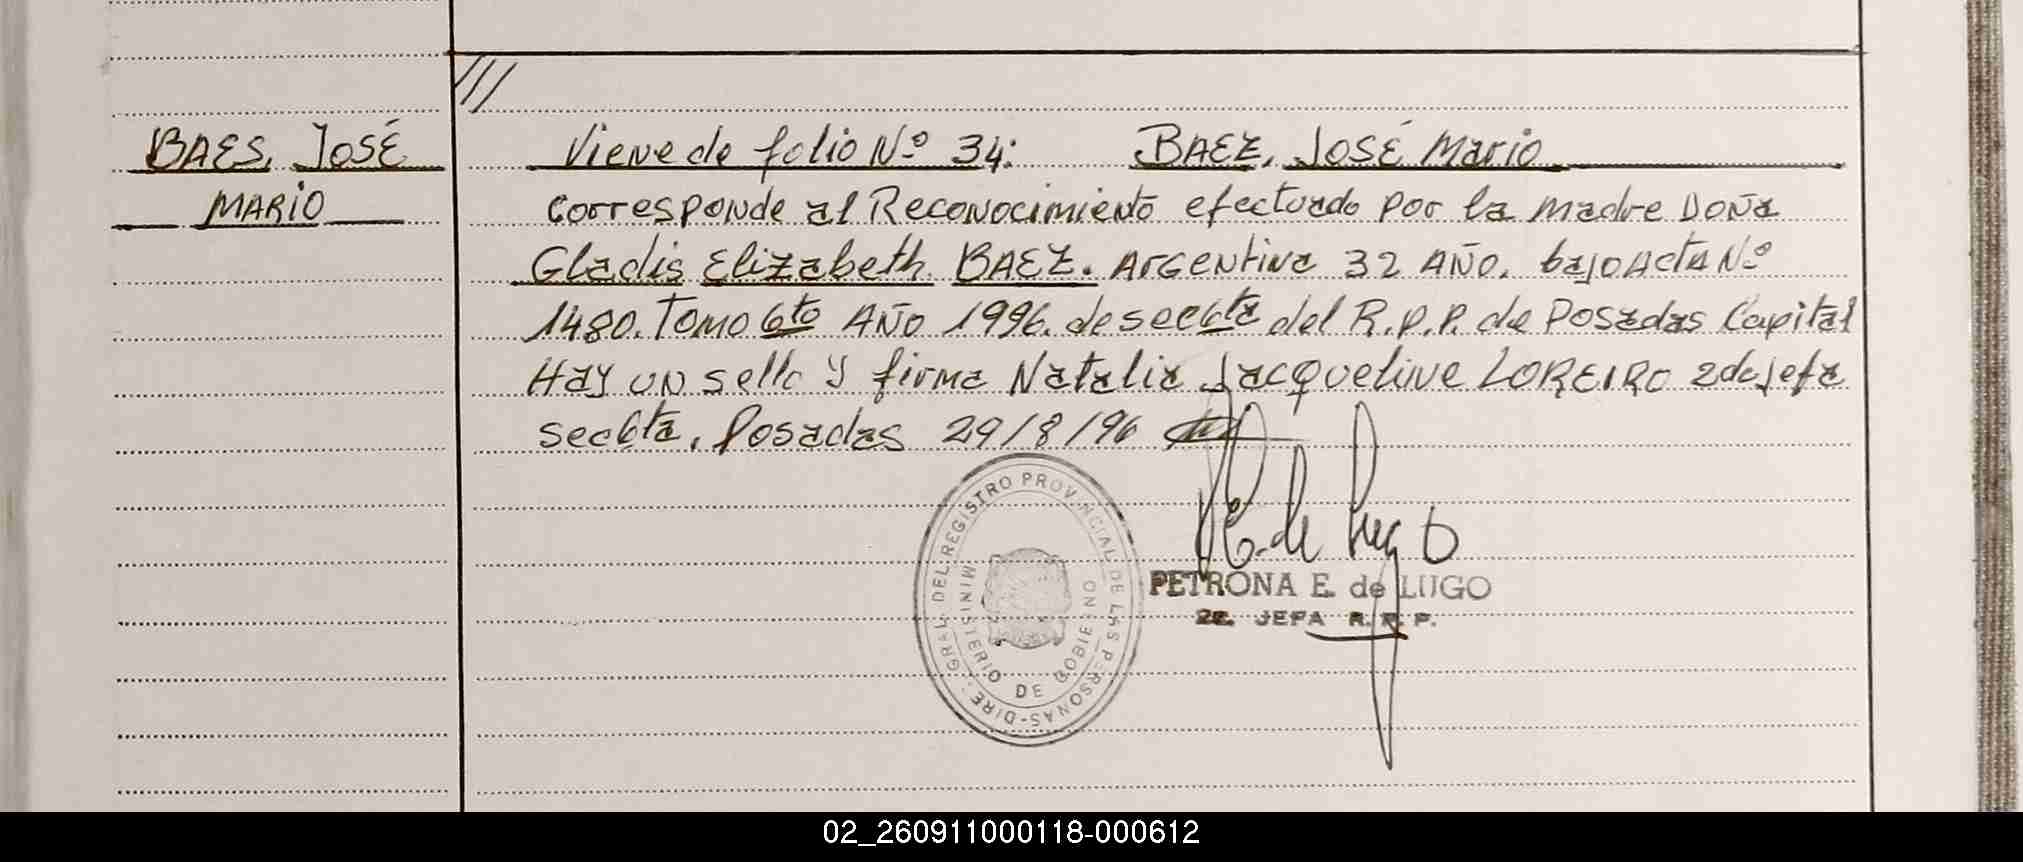 ///
BAES, JOSÉ
MARIO
Viene de folio Nº 34: BAEZ, JOSÉ Mario
Corresponde al Reconocimiento efectuado por la madre Doña
Gladis Elizabeth BAEZ. Argentina 32 Año. bajo Acta Nº
1480. Tomo 6to Año 1996. de sec 6ta del R.P.P. de Posadas Capital
Hay un sello y firma Natalia Jacqueline LOREIRO 2da Jefa
sec 6ta. Posadas 29/8/96
DIRE. GRAL. DEL REGISTRO PROVINCIAL DE LAS PERSONAS-
MINISTERIO DE GOBIERNO
E. de Lugo
PETRONA E. de LUGO
2a. JEFA R. P. P.
02_260911000118-000612